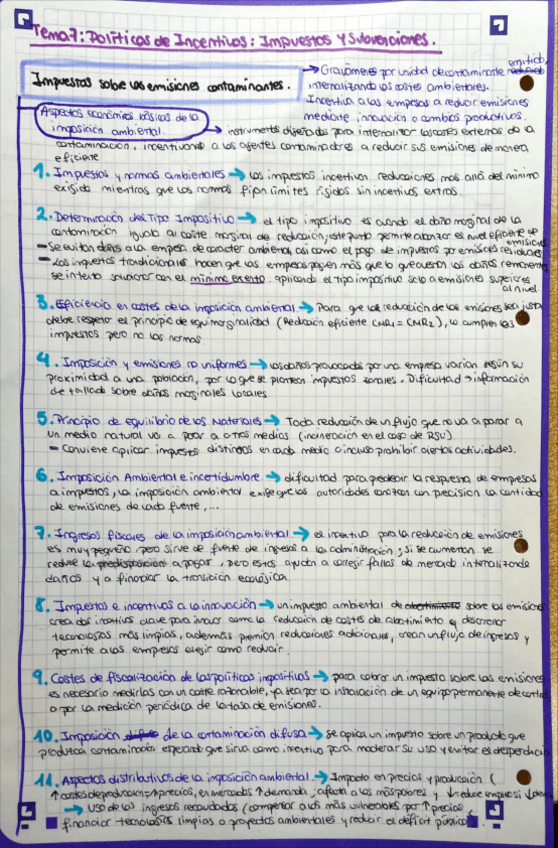 Tema 7: Políticas de Incentivos: Impuestos y Subvenciones.
Impuestos sobre las emisiones contaminantes.
→ Gravámenes por unidad de contaminante emitido,
internalizando los costes ambientales.
Incentiva a las empresas a reducir emisiones
mediante innovación o cambios productivos.
Aspectos económicos básicos de la
imposición ambiental.
→ instrumentos diseñados para internalizar los costes externos de la
contaminación, incentivando a los agentes contaminadores a reducir sus emisiones de manera
eficiente
1. Impuestos y normas ambientales → los impuestos incentivan reducciones más allá del mínimo
exigido mientras que las normas fijan límites rígidos sin incentivos extras.
2. Determinación del Tipo Impositivo → el tipo impositivo es cuando el daño marginal de la
contaminación iguala al coste marginal de reducción, este punto permite alcanzar el nivel eficiente de
emisiones
- Se evitan daños a la empresa de caracter ambiental, así como el pago de impuestos por emisiones residuales
- Los impuestos tradicionales hacen que las empresas paguen más que lo que cuestan los daños remanentes
se intenta solucionar con el mínimo exento: aplicando el tipo impositivo solo a emisiones superiores
al nivel.
3. Eficiencia en costes de la imposición ambiental → Para que la reducción de las emisiones sea justa
debe respetar el principio de equimarginalidad (Reducción eficiente CMR1 = CMR2), lo cumplen los
impuestos pero no las normas
4. Imposición y emisiones no uniformes → los daños provocados por una empresa varían según su
proximidad a una población, por lo que se plantean impuestos zonales. Dificultad → información
detallada sobre daños marginales locales
5. Principio de equilibrio de los Materiales → Toda reducción de un flujo que no va a parar a
un medio natural va a parar a otros medios (incineración en el caso de RSU)
- Conviene aplicar impuestos distintos en cada medio o incluso prohibir ciertas actividades.
6. Imposición Ambiental e incertidumbre → dificultad para predecir la respuesta de empresas
a impuestos, la imposición ambiental exige que las autoridades conozcan con precisión la cantidad
de emisiones de cada fuente, ...
7. Ingresos fiscales de la imposición ambiental → el incentivo para la reducción de emisiones
es muy pequeño pero sirve de fuente de ingresos a la administración; si se aumentan se
reduce la predisposición a pagar, pero estos ayudan a corregir fallos de mercado internalizando
daños y a financiar la transición ecológica.
8. Impuestos e incentivos a la innovación → un impuesto ambiental sobre las emisiones
crea dos incentivos clave para innovar como la reducción de costes de abatimiento y desarrollar
tecnologías más limpias, además premian reducciones adicionales, crean un flujo de ingresos y
permite a las empresas elegir como reducir.
9. Costes de fiscalización de las políticas impositivas → para cobrar un impuesto sobre las emisiones
es necesario medirlas con un coste razonable, ya sea por la instalación de un equipo permanente de control
o por la medición periódica de la tasa de emisiones.
10. Imposición de la contaminación difusa → se aplica un impuesto sobre un producto que
produzca contaminación esperando que sirva como incentivo para moderar su uso y evitar el desperdicio
11. Aspectos distributivos de la imposición ambiental. → Impacto en precios y producción (
↑ costes de producción = ↑ precios, en mercados ↑ demanda; afecta a los más pobres y ↓ reduce empleo si ↓
→ Uso de los ingresos recaudados (compensar a los más vulnerables por ↑ precios,
financiar tecnologías limpias o proyectos ambientales y reducir el déficit público).